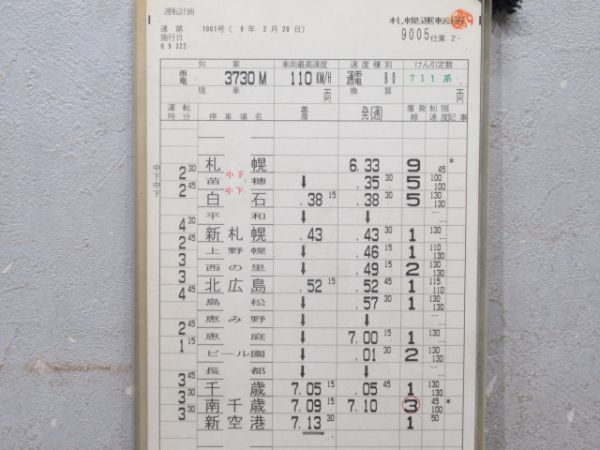 運転計画
達第 1001号( 9年 2月20日)
施行日
H9 322
札幌運転所
9005仕業 2-
列車 車両最高速度 速度種別 けん引定数
電 3730M 110KM/H 通電 80 711系
現車 両 換算 両
運転時分 停車場名 着 発(通) 着発線 制限速度 記事
札幌 6.33 9 45 *
中下 2 30 中下
苗穂 ↓ .35 30 5 100 100
中下 2 45 中下
白石 .38 15 .38 30 5 130 130
平和 ↓ ↓
4 30
新札幌 .43 .43 30 1 130
2 45
上野幌 ↓ .46 15 1 110 130
3
西の里 ↓ .49 15 2 130 130
3
北広島 .52 15 .52 45 1 115 110
4 45
島松 ↓ .57 30 1 130 130
恵み野 ↓ ↓
2 45
恵庭 ↓ 7.00 15 1 130 130
1 15
ビール園 ↓ .01 30 2 130 130
長都 ↓ ↓
3 45
千歳 7.05 15 .05 45 1 130 130
3 30
南千歳 7.09 15 7.10 3 45 100 *
3 30
新空港 7.13 30 1 50